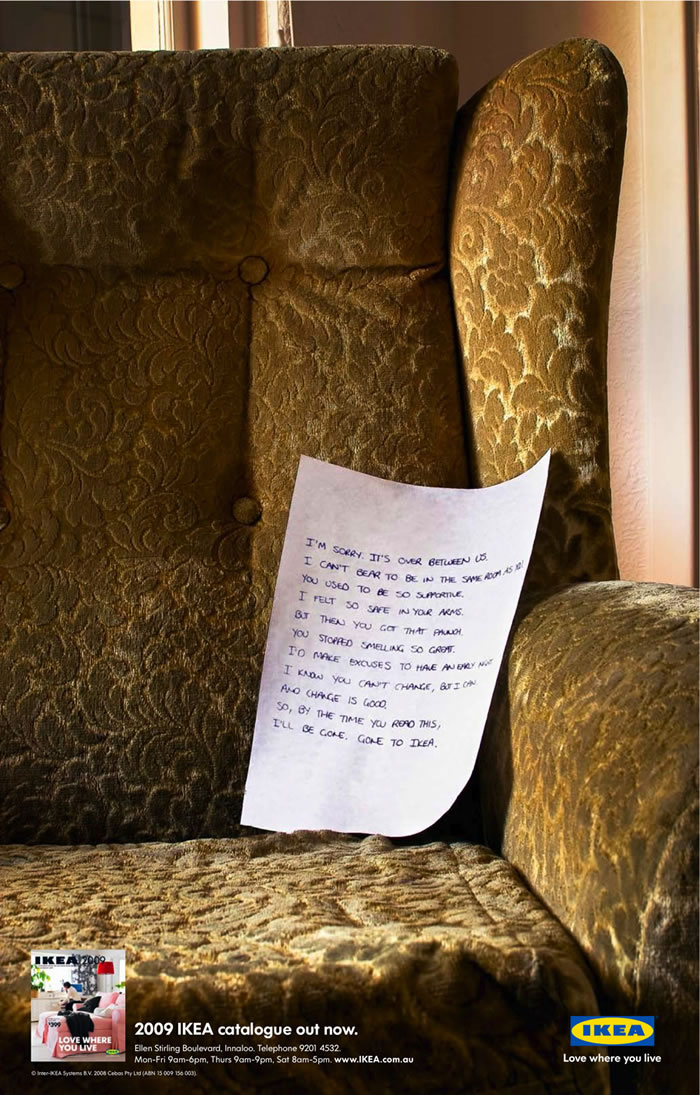 I'M SORRY. IT'S OVER BETWEEN US.
I CAN'T BEAR TO BE IN THE SAME ROOM AS YOU
YOU USED TO BE SO SUPPORTIVE.
I FELT SO SAFE IN YOUR ARMS.
BUT THEN YOU GOT THAT PAUNCH.
YOU STOPPED SMELLING SO GREAT.
I'D MAKE EXCUSES TO HAVE AN EARLY NIGHT
I KNOW YOU CAN'T CHANGE, BUT I CAN.
AND CHANGE IS GOOD.
SO, BY THE TIME YOU READ THIS,
I'LL BE GONE. GONE TO IKEA.
IKEA 2009
$399
LOVE WHERE
YOU LIVE
2009 IKEA catalogue out now.
Ellen Stirling Boulevard, Innaloo. Telephone 9201 4532.
Mon-Fri 9am-6pm, Thurs 9am-9pm, Sat 8am-5pm. www.IKEA.com.au
© Inter-IKEA Systems B.V. 2008 Cebas Pty Ltd (ABN 15 009 156 003).
IKEA
Love where you live